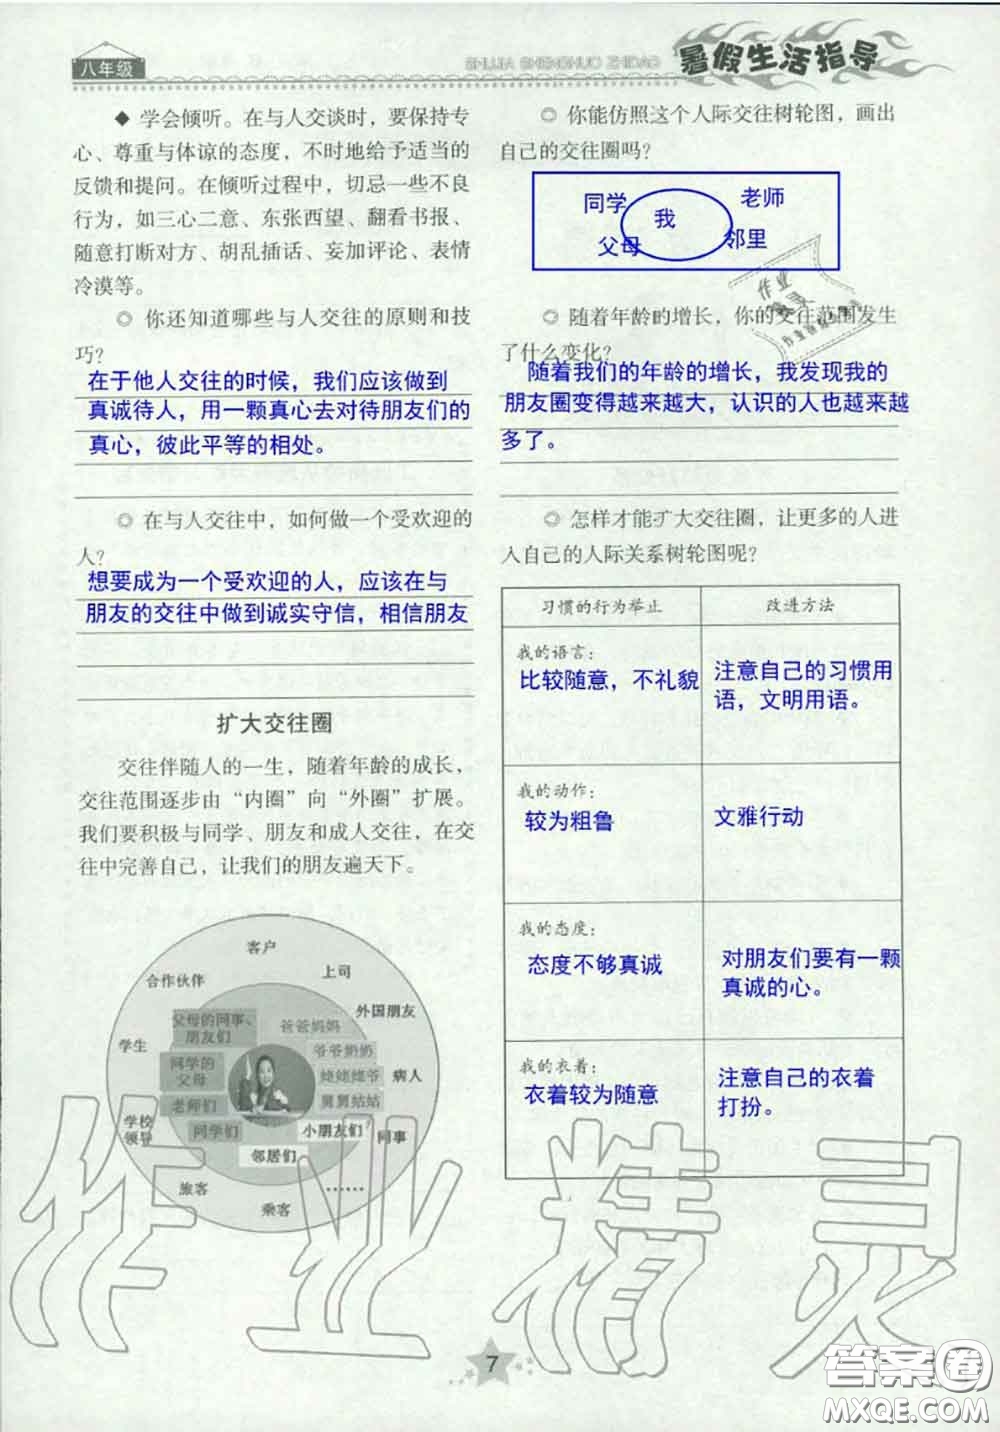 八年级
暑假生活指导
◆ 学会倾听。在与人交谈时，要保持专
心、尊重与体谅的态度，不时地给予适当的
反馈和提问。在倾听过程中，切忌一些不良
行为，如三心二意、东张西望、翻看书报、
随意打断对方、胡乱插话、妄加评论、表情
冷漠等。
◎ 你还知道哪些与人交往的原则和技
巧？
在于他人交往的时候，我们应该做到
真诚待人，用一颗真心去对待朋友们的
真心，彼此平等的相处。
◎ 在与人交往中，如何做一个受欢迎的
人？
想要成为一个受欢迎的人，应该在与
朋友的交往中做到诚实守信，相信朋友
扩大交往圈
交往伴随人的一生，随着年龄的成长，
交往范围逐步由“内圈”向“外圈”扩展。
我们要积极与同学、朋友和成人交往，在交
往中完善自己，让我们的朋友遍天下。
客户
合作伙伴
上司
外国朋友
学生
病人
学校
领导
同事
旅客
乘客
……
父母的同事、
朋友们
爸爸妈妈
同学的
父母
爷爷奶奶
姥姥姥爷
老师们
舅舅姑姑
同学们
小朋友们
邻居们
◎ 你能仿照这个人际交往树轮图，画出
自己的交往圈吗？
同学
老师
我
父母
邻里
◎ 随着年龄的增长，你的交往范围发生
了什么变化？
随着我们的年龄的增长，我发现我的
朋友圈变得越来越大，认识的人也越来越
多了。
◎ 怎样才能扩大交往圈，让更多的人进
入自己的人际关系树轮图呢？
习惯的行为举止
改进方法
我的语言：
比较随意，不礼貌
注意自己的习惯用
语，文明用语。
我的动作：
较为粗鲁
文雅行动
我的态度：
态度不够真诚
对朋友们要有一颗
真诚的心。
我的衣着：
衣着较为随意
注意自己的衣着
打扮。
作业精灵
7
答案圈
MXQE.COM